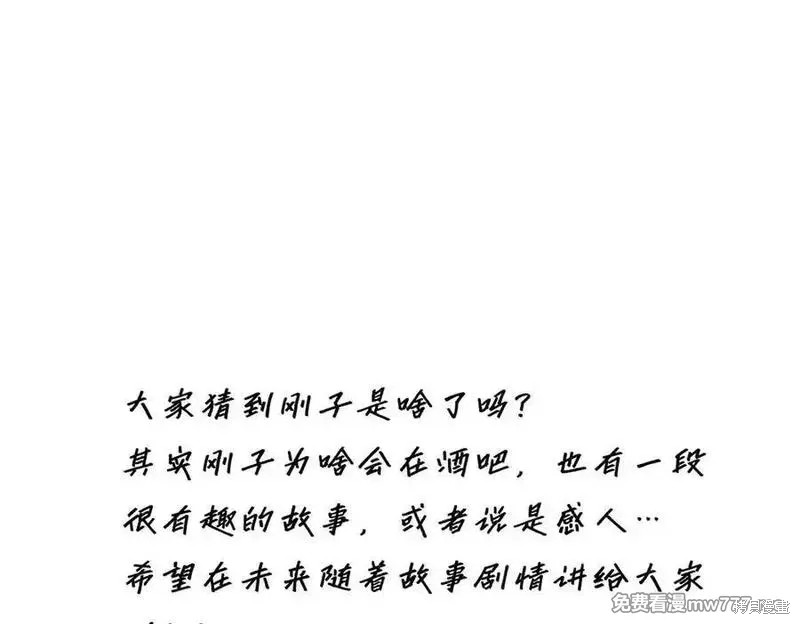 大家猜到刚子是啥了吗?
其实刚子为啥会在酒吧，也有一段
很有趣的故事，或者说是感人…
希望在未来随着故事剧情讲给大家
免费看漫mw777.